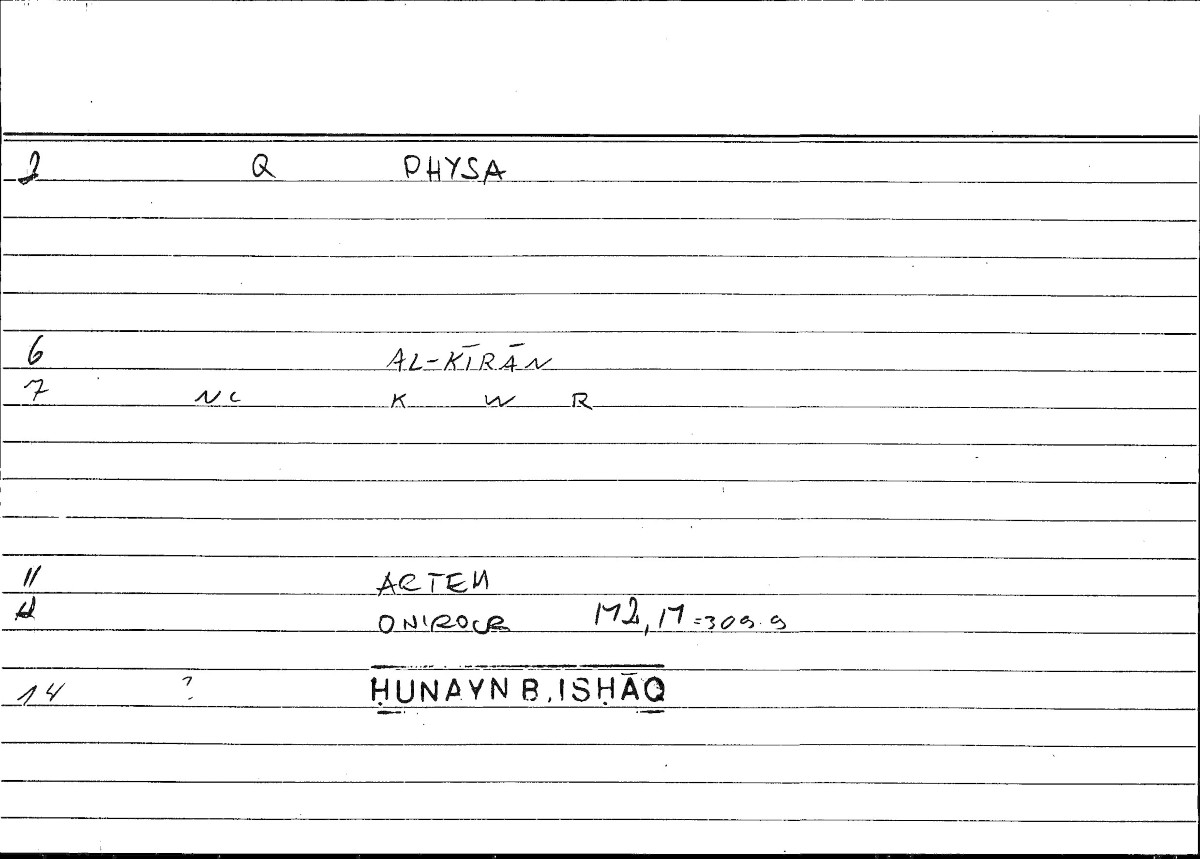 2 Q PHYSA
6 AL-KĪRĀN
7 NC K W R
11 ARTEM
ONIROCR 172, 17=309.9
14 ? ḤUNAYN B. ISḤĀQ